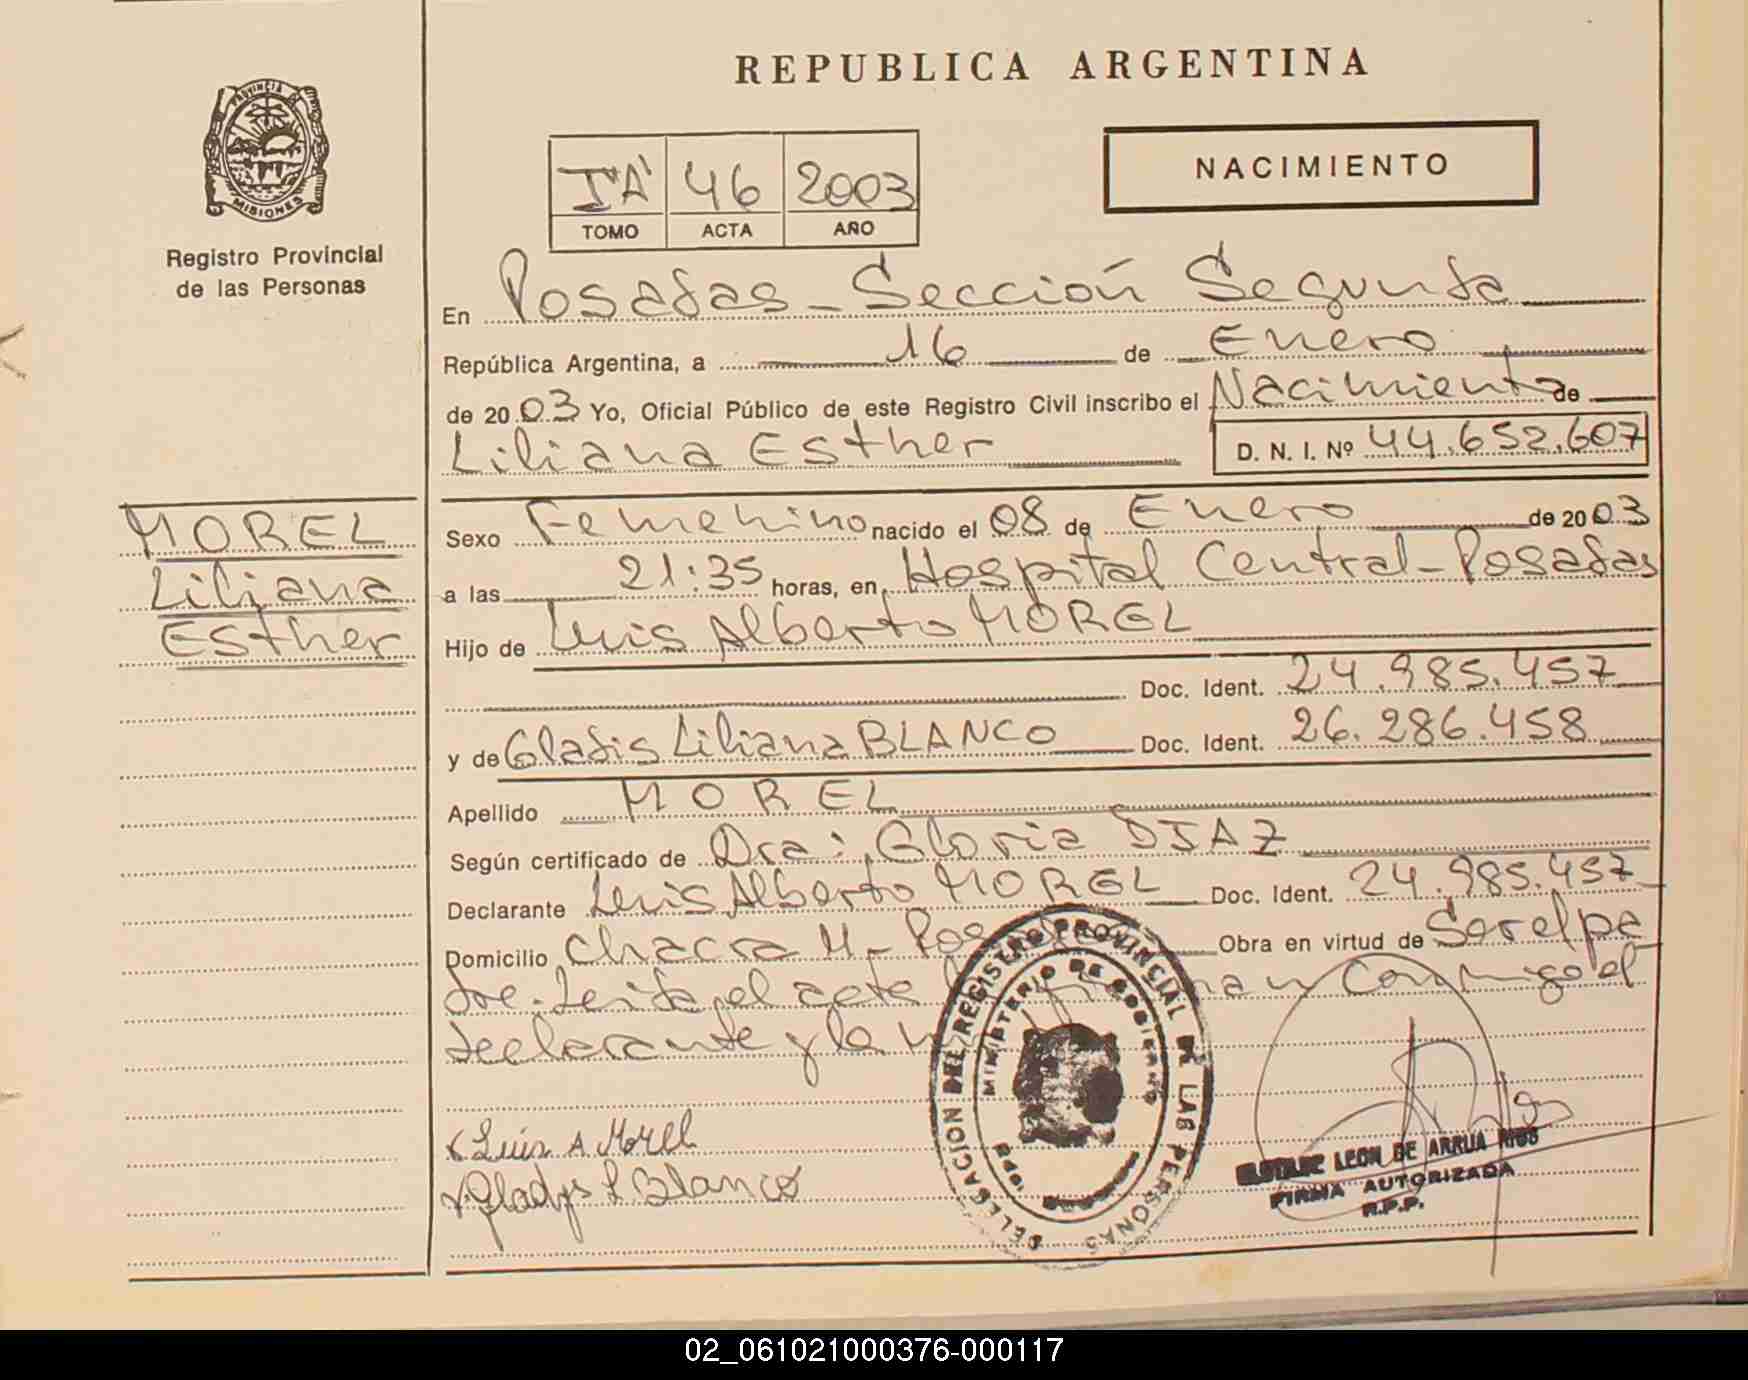 REPUBLICA ARGENTINA
PROVINCIA DE
MISIONES
Registro Provincial
de las Personas
I"A"
46
2003
TOMO
ACTA
AÑO
NACIMIENTO
En Posadas - Sección Segunda
República Argentina, a 16 de Enero
de 20 03 Yo, Oficial Público de este Registro Civil inscribo el Nacimiento de
Liliana Esther
D. N. I. Nº 44.652.607
MOREL
Liliana
Esther
Sexo Femenino nacido el 08 de Enero de 20 03
a las 21:35 horas, en Hospital Central - Posadas
Hijo de Luis Alberto MOREL
Doc. Ident. 24.985.457
y de Gladis Liliana BLANCO Doc. Ident. 26.286.458
Apellido MOREL
Según certificado de Dra: Gloria DIAZ
Declarante Luis Alberto MOREL Doc. Ident. 24.985.457
Domicilio Chacra 11 - Obra en virtud de Ser el pa
dre. Leida el acta firman conmigo el
declarante y la
Luis A Morel
Gladys L Blanco
DELEGACION DEL REGISTRO PROVINCIAL DE LAS PERSONAS
MINISTERIO DE GOBIERNO
LEON DE ARRUA RIOS
FIRMA AUTORIZADA
R.P.P.
02_061021000376-000117